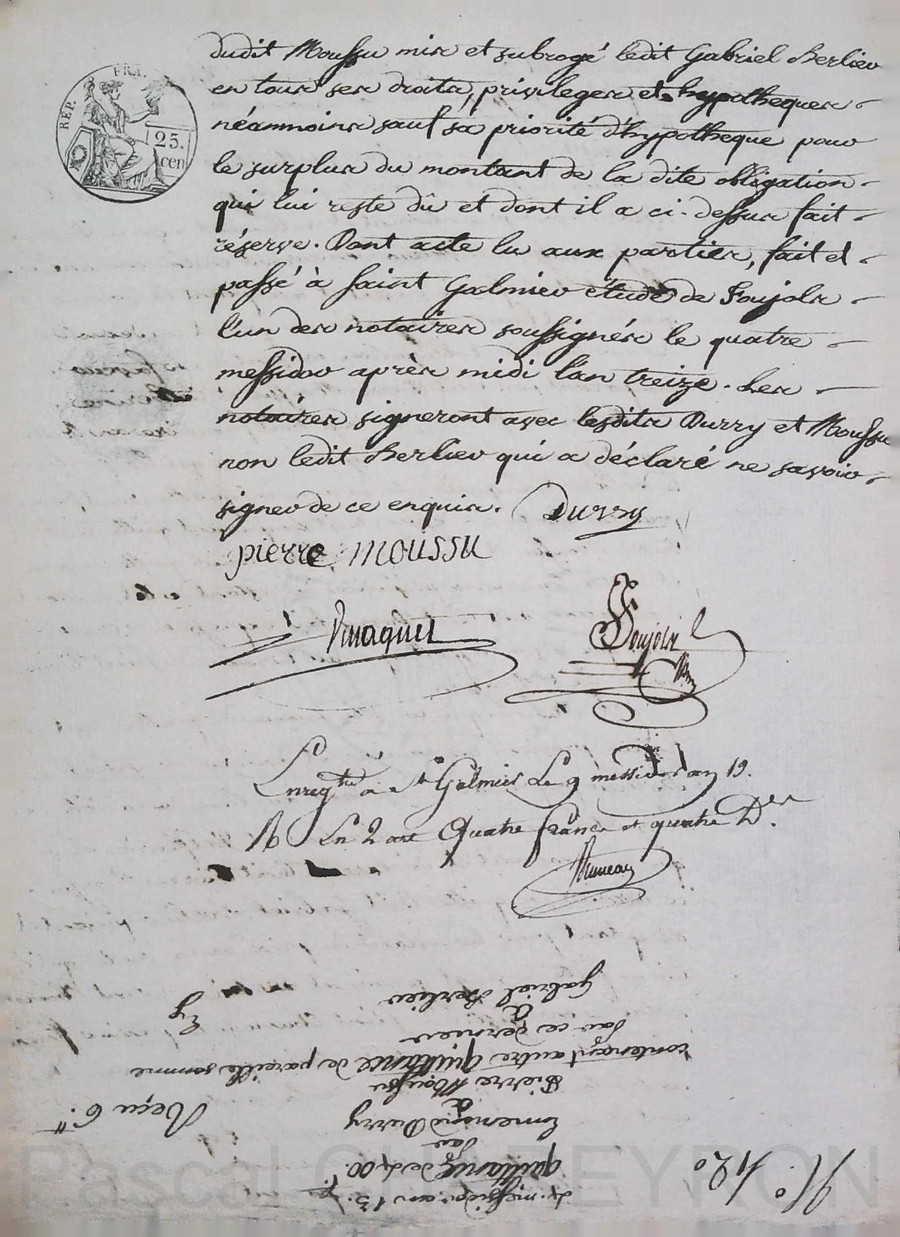 REP. FRA.
25.
cen
dudit Moussu mis et subrogé ledit Gabriel Berlier
en tous ses droits, privileges et hypotheques
néanmoins sauf sa priorité d'hypotheque pour
le surplus du montant de la dite obligation
qui lui reste dû et dont il a ci-dessus fait
réserve. Dont acte lu aux parties, fait et
passé à Saint Galmier étude de Soujols
l'un des notaires soussignés le quatre
messidor après midi l'an treize. Les
notaires signeront avec lesdits Durry et Moussu
non ledit Berlier qui a déclaré ne savoir
signer de ce enquis. Durry
pierre MOUSSU
Soujols
Enregtré à St Galmier Le 9 messidor an 13.
En 2 art Quatre francs et quatre D.es
N.o 420
4 messidor an 13.
quittance de 400.f
par
Durry
à
Pierre Moussu
contenant autre quittance de pareille somme
par ce dernier
à
Gabriel Berlier
Reçu 6.
Pascal CHABEYRON